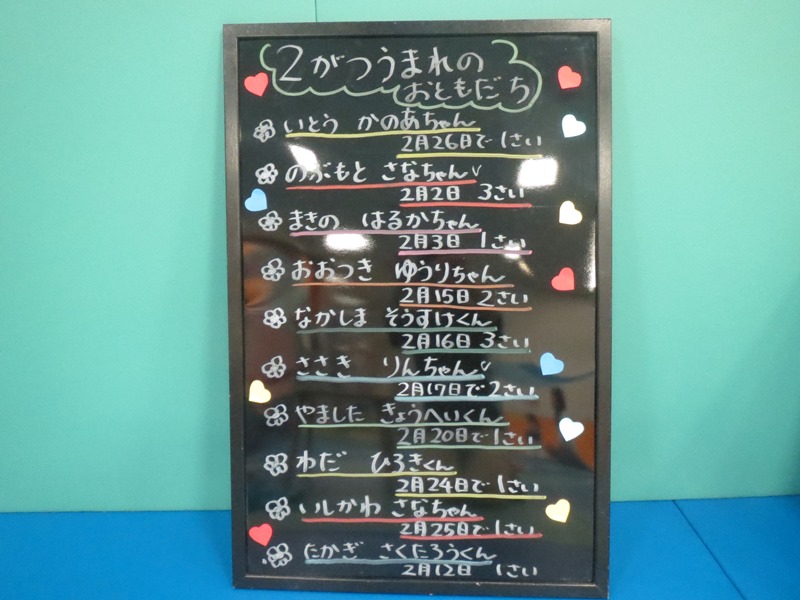 2がつうまれの
おともだち
いとう かのあちゃん
2月26日で 1さい
のぶもと さなちゃん
2月2日 3さい
まきの はるかちゃん
2月3日 1さい
おおつき ゆうりちゃん
2月15日 2さい
なかしま そうすけくん
2月16日 3さい
ささき りんちゃん
2月17日で 2さい
やました きょうへいくん
2月20日で 1さい
わだ ひろきくん
2月24日で 1さい
いしかわ さなちゃん
2月25日で 1さい
たかぎ さくたろうくん
2月12日 1さい